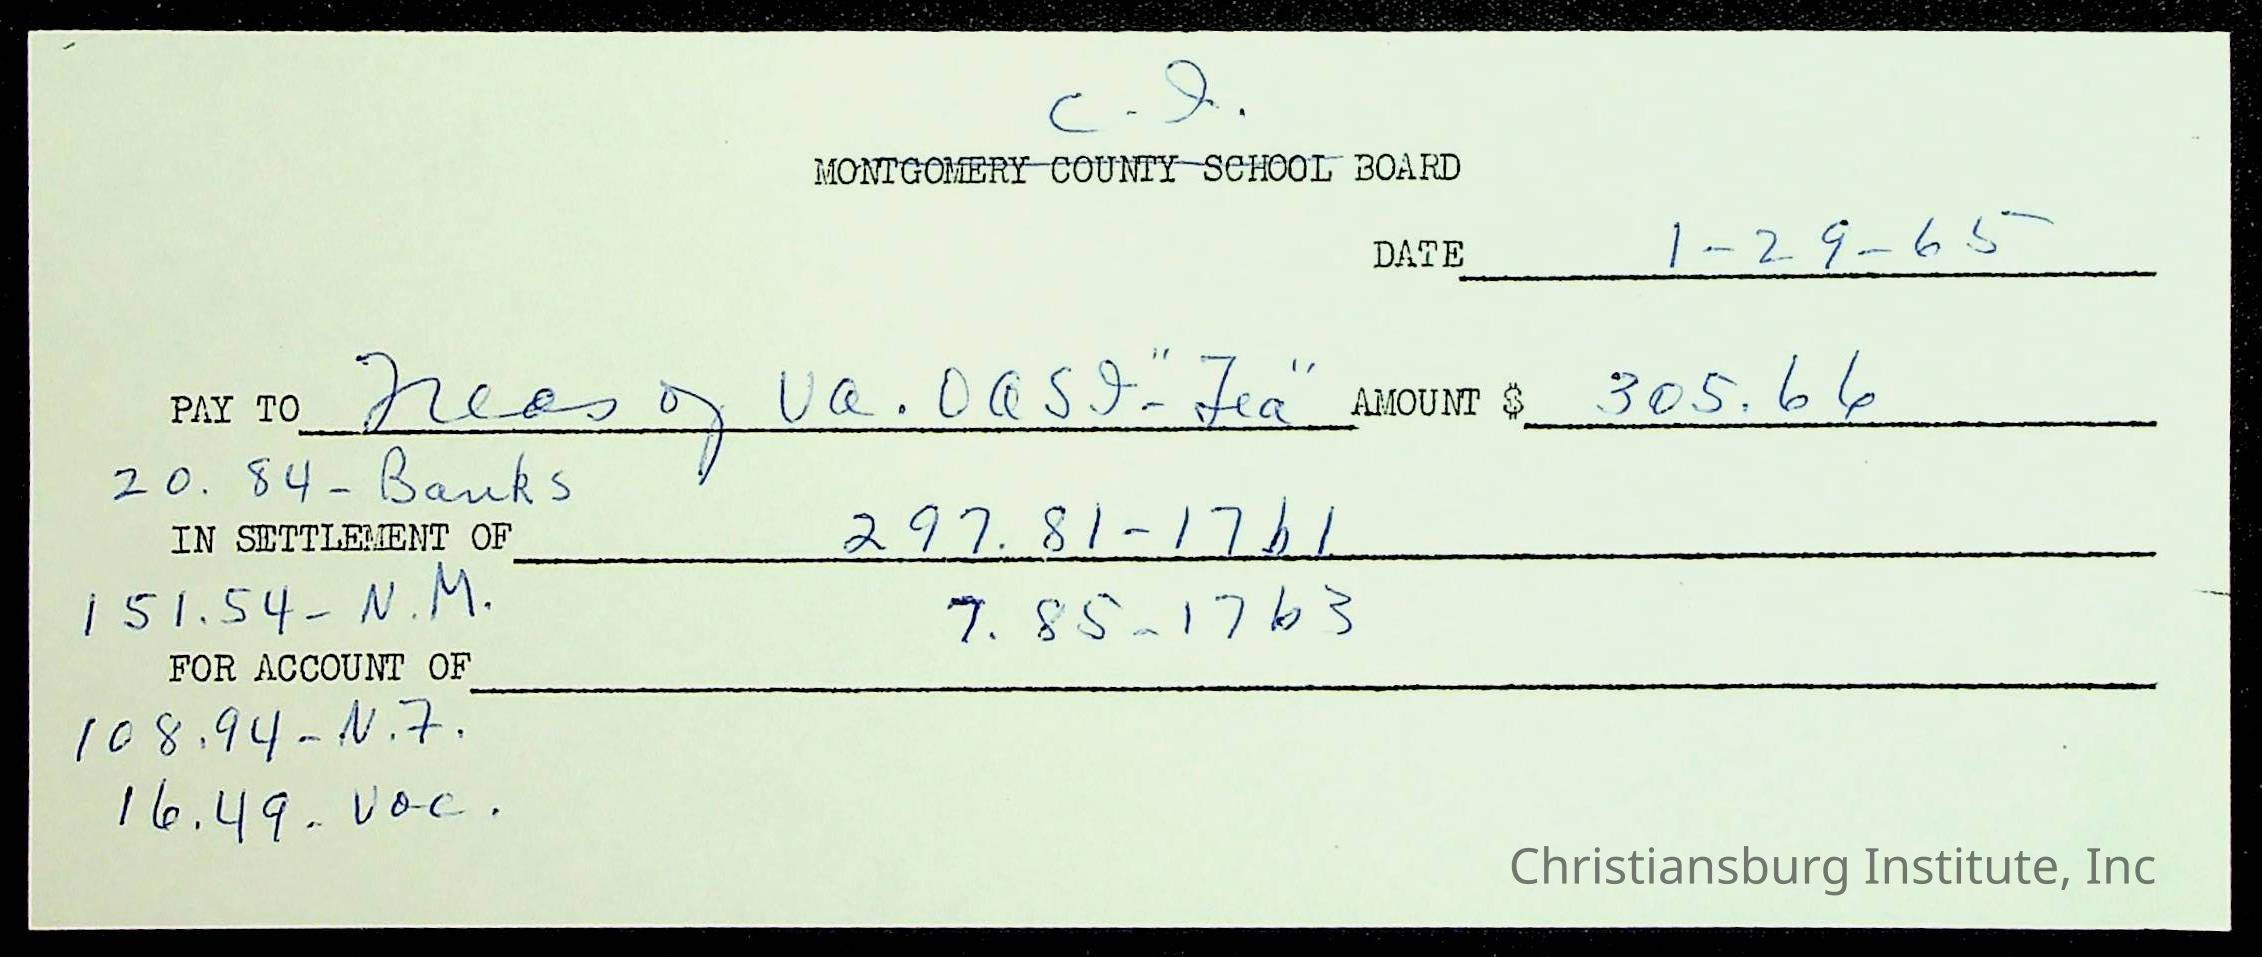 C. I.
MONTGOMERY COUNTY SCHOOL BOARD
DATE 1-29-65
PAY TO Treas of Va. OASI-"Fea" AMOUNT $ 305.66
20.84-Banks
IN SETTLEMENT OF 297.81-1761
151.54-N.M. 7.85-1763
FOR ACCOUNT OF
108.94-N.F.
16.49-Voc.
Christiansburg Institute, Inc